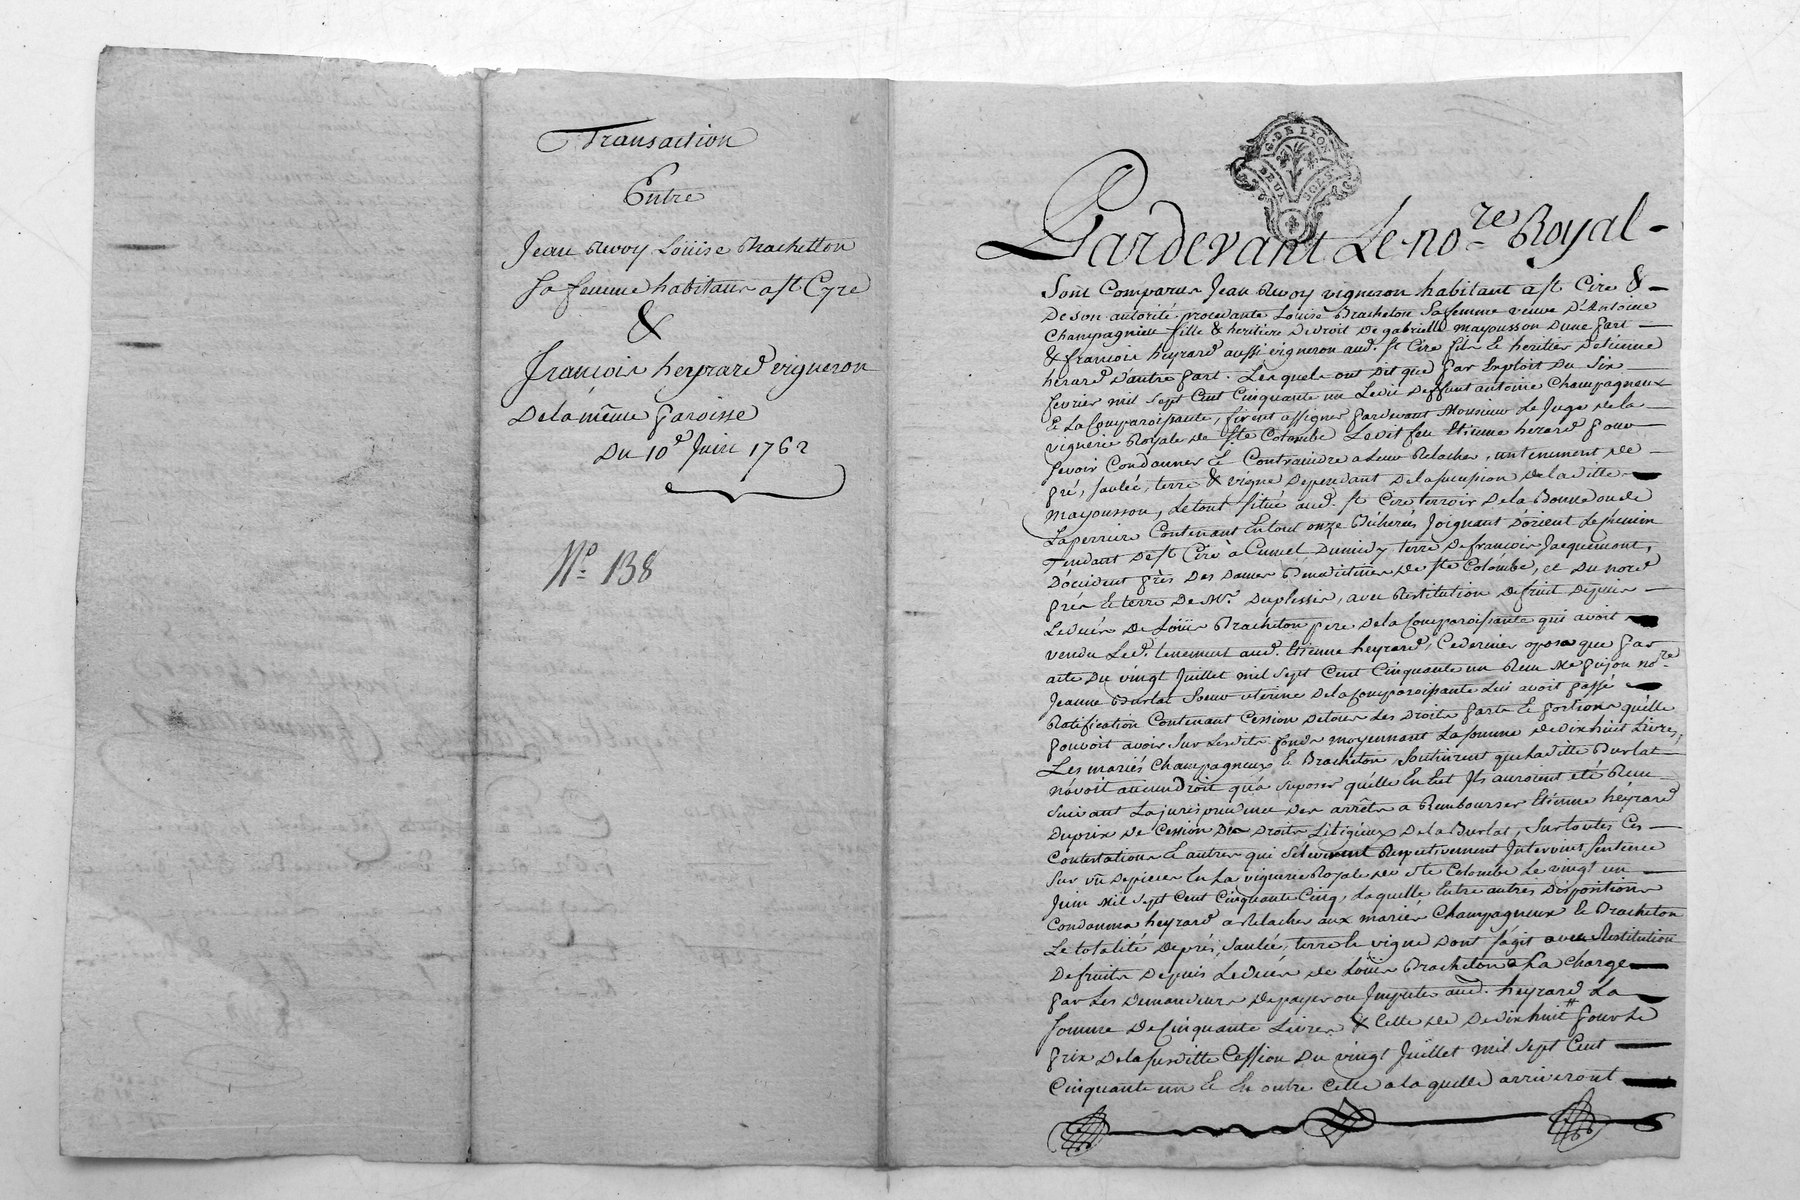 Transaction
Entre
Jean Revoy Loüise Bracketton
Sa femme habitans a St Cyre
&
François heyrard vigneron
De la même paroisse
Du 10e Juin 1762
No. 138
G. DE LYON
DEUX SOLS
Pardevant Le no.re Royal -
Sont Comparus Jean Revoy vigneron habitant a St Cire &
De son autorité procedante Louise Bracheton Sa femme veuve D'Antoine
Champagnieu fille & heritiere De droit de gabrielle mayousson D'une part
& françois heyrard aussi vigneron aud. St Cire fils & heritier D'etienne
herard D'autre part. Lesquels ont Dit que par Exploit Du Six
fevrier mil Sept Cent Cinquante un Ledit Deffunt antoine Champagneux
& La Comparoissante, firent assigner pardevant Monsieur Le Juge de la
viguerie Royale de Ste Colombe Ledit feu Etienne herard pour
Sevoir Condamner & Contraindre a Leur Relacher, un tenement de
pré, Saulée, terre & vigne Dependant De la succession de la ditte
Mayousson, Le tout Situé aud. St Cire terroir De la Bonnedon de
Laperriere Contenant En tout onze Bicherés Joignant D'orient Le chemin
Tendant De St Cire à Cumel Dumidy terre De françois Jacquemont,
D'occident prés Des Dames Benedictines de Ste Colombe, et Du nord
prés & terre De Mr. Duplessis, avec Restitution De fruit Depuis
Le decés De Loüis Bracheton pere De la Comparoissante qui avoit
vendu Led. tenement aud. Etienne heyrard, Ce dernier oposa que par
acte Du vingt Juillet mil Sept Cent Cinquante un Reçu Me pujon no.re
Jeanne Burlat Soeur uterine De la Comparoissante Lui avoit passé
Ratification Contenant Cession De tous Les Droits parts & portions qu'elle
pouvoit avoir Sur Lesdits fonds moyennant La Somme de dix huit Livres,
Les mariés Champagneux & Bracheton, Soutinrent que La ditte Burlat
n'avoit aucun Droit qu'a Suposer qu'elle En Eut Ils auroient eté Reçu
Suivant La jurisprudence Des arrêts a Rembourser Etienne heyrard
Du prix de Cession De Droits Litigieux De la Burlat, Sur toutes Ces
Contestations & autres qui S'eleverent Respectivement Intervint Sentence
Sur vû De pieces En La viguerie Royale de Ste Colombe Le vingt un
Juin Mil Sept Cent Cinquante Cinq, Laquelle Entre autres Dispositions
Condamna heyrard a Relacher aux mariés Champagneux & Bracheton
Le totalité De prés, Saulée, terre & vigne Dont S'agit avec Restitution
De fruits Depuis Le decés de Loüis Bracheton a La Charge
par Les Demandeurs De payer ou Imputer aud. heyrard La
Somme De Cinquante Livres & Celle de De dix huit # pour Le
prix De la susditte Cession Du vingt Juillet Mil Sept Cent
Cinquante un & En outre Celle a la quelle arriveront